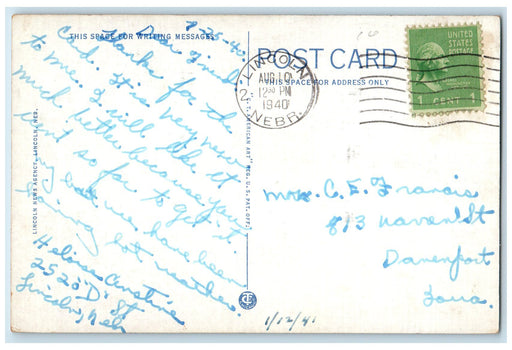 THIS SPACE FOR WRITING MESSAGES
Dear
Thanks for the
Card. It is very new
to me. I will like it
much better because you
want so far to get it.
my but we have been
having hot weather.
Heloise
2520 "D" St
Lincoln, Neb
LINCOLN NEWS AGENCY, LINCOLN, NEB.
"C.T. AMERICAN ART" REG. U.S. PAT. OFF.
POST CARD
THIS SPACE FOR ADDRESS ONLY
LINCOLN
AUG 10
12 30 PM
1940
2
NEBR.
UNITED
STATES
POSTAGE
1 CENT 1
Mrs. C. E. Francis
813 Haven St
Davenport
Iowa.
1/12/41